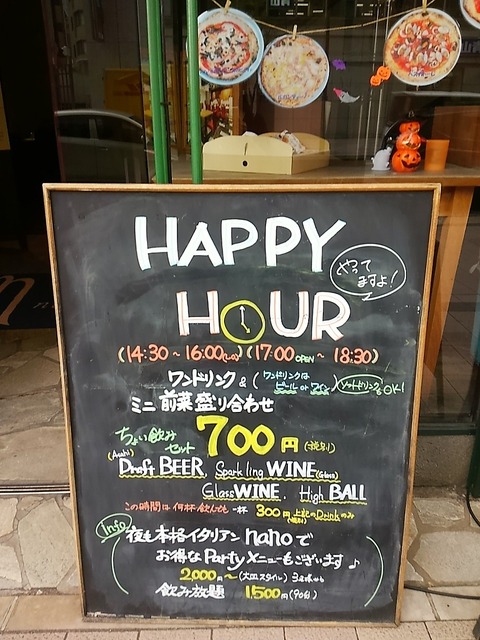 HAPPY
やってますよ!
HOUR
(14:30~16:00(L.O)) (17:00 OPEN ~ 18:30)
ワンドリンク & (ワンドリンクはビール or ワイン) ソフトドリンクもOK!
ミニ前菜盛り合わせ
ちょい飲みセット 700円(税別)
(Asahi) Draft BEER, Sparkling WINE(Glass)
Glass WINE, High BALL
この時間は何杯飲んでも一杯 300円(税別) 上記のDrinkのみ
Info
夜も本格イタリアン nanoで
お得なPartyメニューもございます♪
2,000円~ (大皿スタイル)
飲み放題 1,500円(90分)